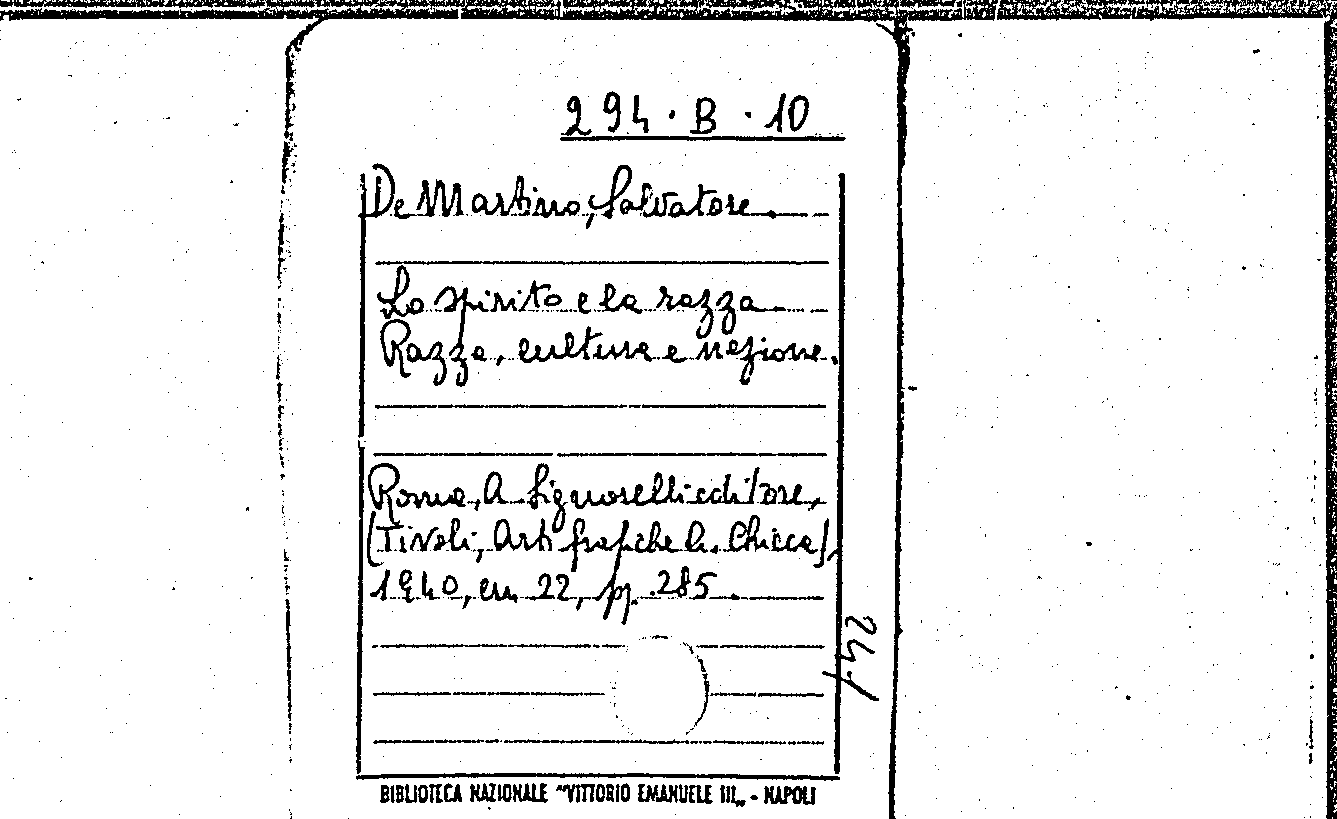 294. B. 10
De Martino, Salvatore.
Lo spirito e la razza.
Razza, cultura e nazione.
Roma, A. Signorelli editore,
(Tivoli, Arti grafiche A. Chicca),
1940, cm 22, pp. 285.
241
BIBLIOTECA NAZIONALE "VITTORIO EMANUELE III„ - NAPOLI